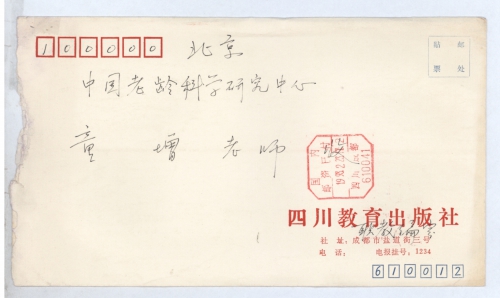 100000 北京
贴 邮
票 处
中国老龄科学研究中心
童 增 老师
610041
四川教育出版社
社 址：成都市盐道街三号
电 话： 电报挂号：1234
610012